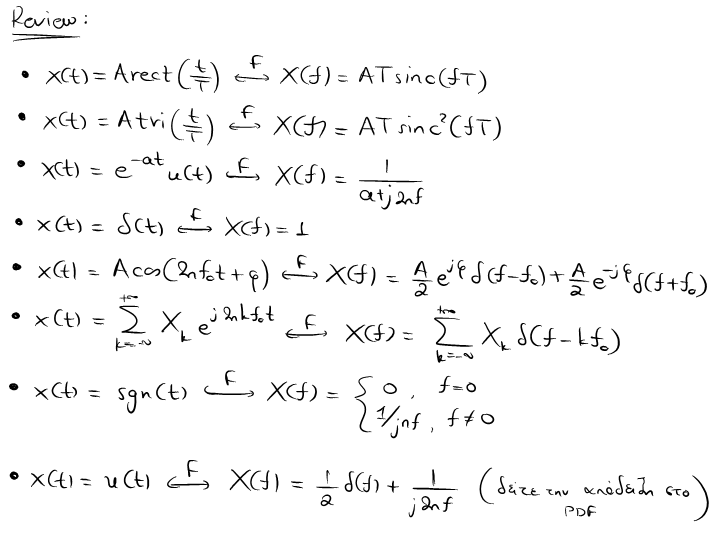 Review:
• x(t) = A rect(t/T) ⟷F X(f) = AT sinc(fT)
• x(t) = A tri(t/T) ⟷F X(f) = AT sinc²(fT)
• x(t) = e^{-at} u(t) ⟷F X(f) = 1/(a+j2πf)
• x(t) = δ(t) ⟷F X(f) = 1
• x(t) = A cos(2πf₀t + φ) ⟷F X(f) = A/2 e^{jφ} δ(f-f₀) + A/2 e^{-jφ} δ(f+f₀)
• x(t) = Σ_{k=-∞}^{+∞} X_k e^{j2πkf₀t} ⟷F X(f) = Σ_{k=-∞}^{+∞} X_k δ(f-kf₀)
• x(t) = sgn(t) ⟷F X(f) = { 0, f=0
1/jπf, f≠0
• x(t) = u(t) ⟷F X(f) = 1/2 δ(f) + 1/(j2πf) (δείτε την απόδειξη στο
PDF)